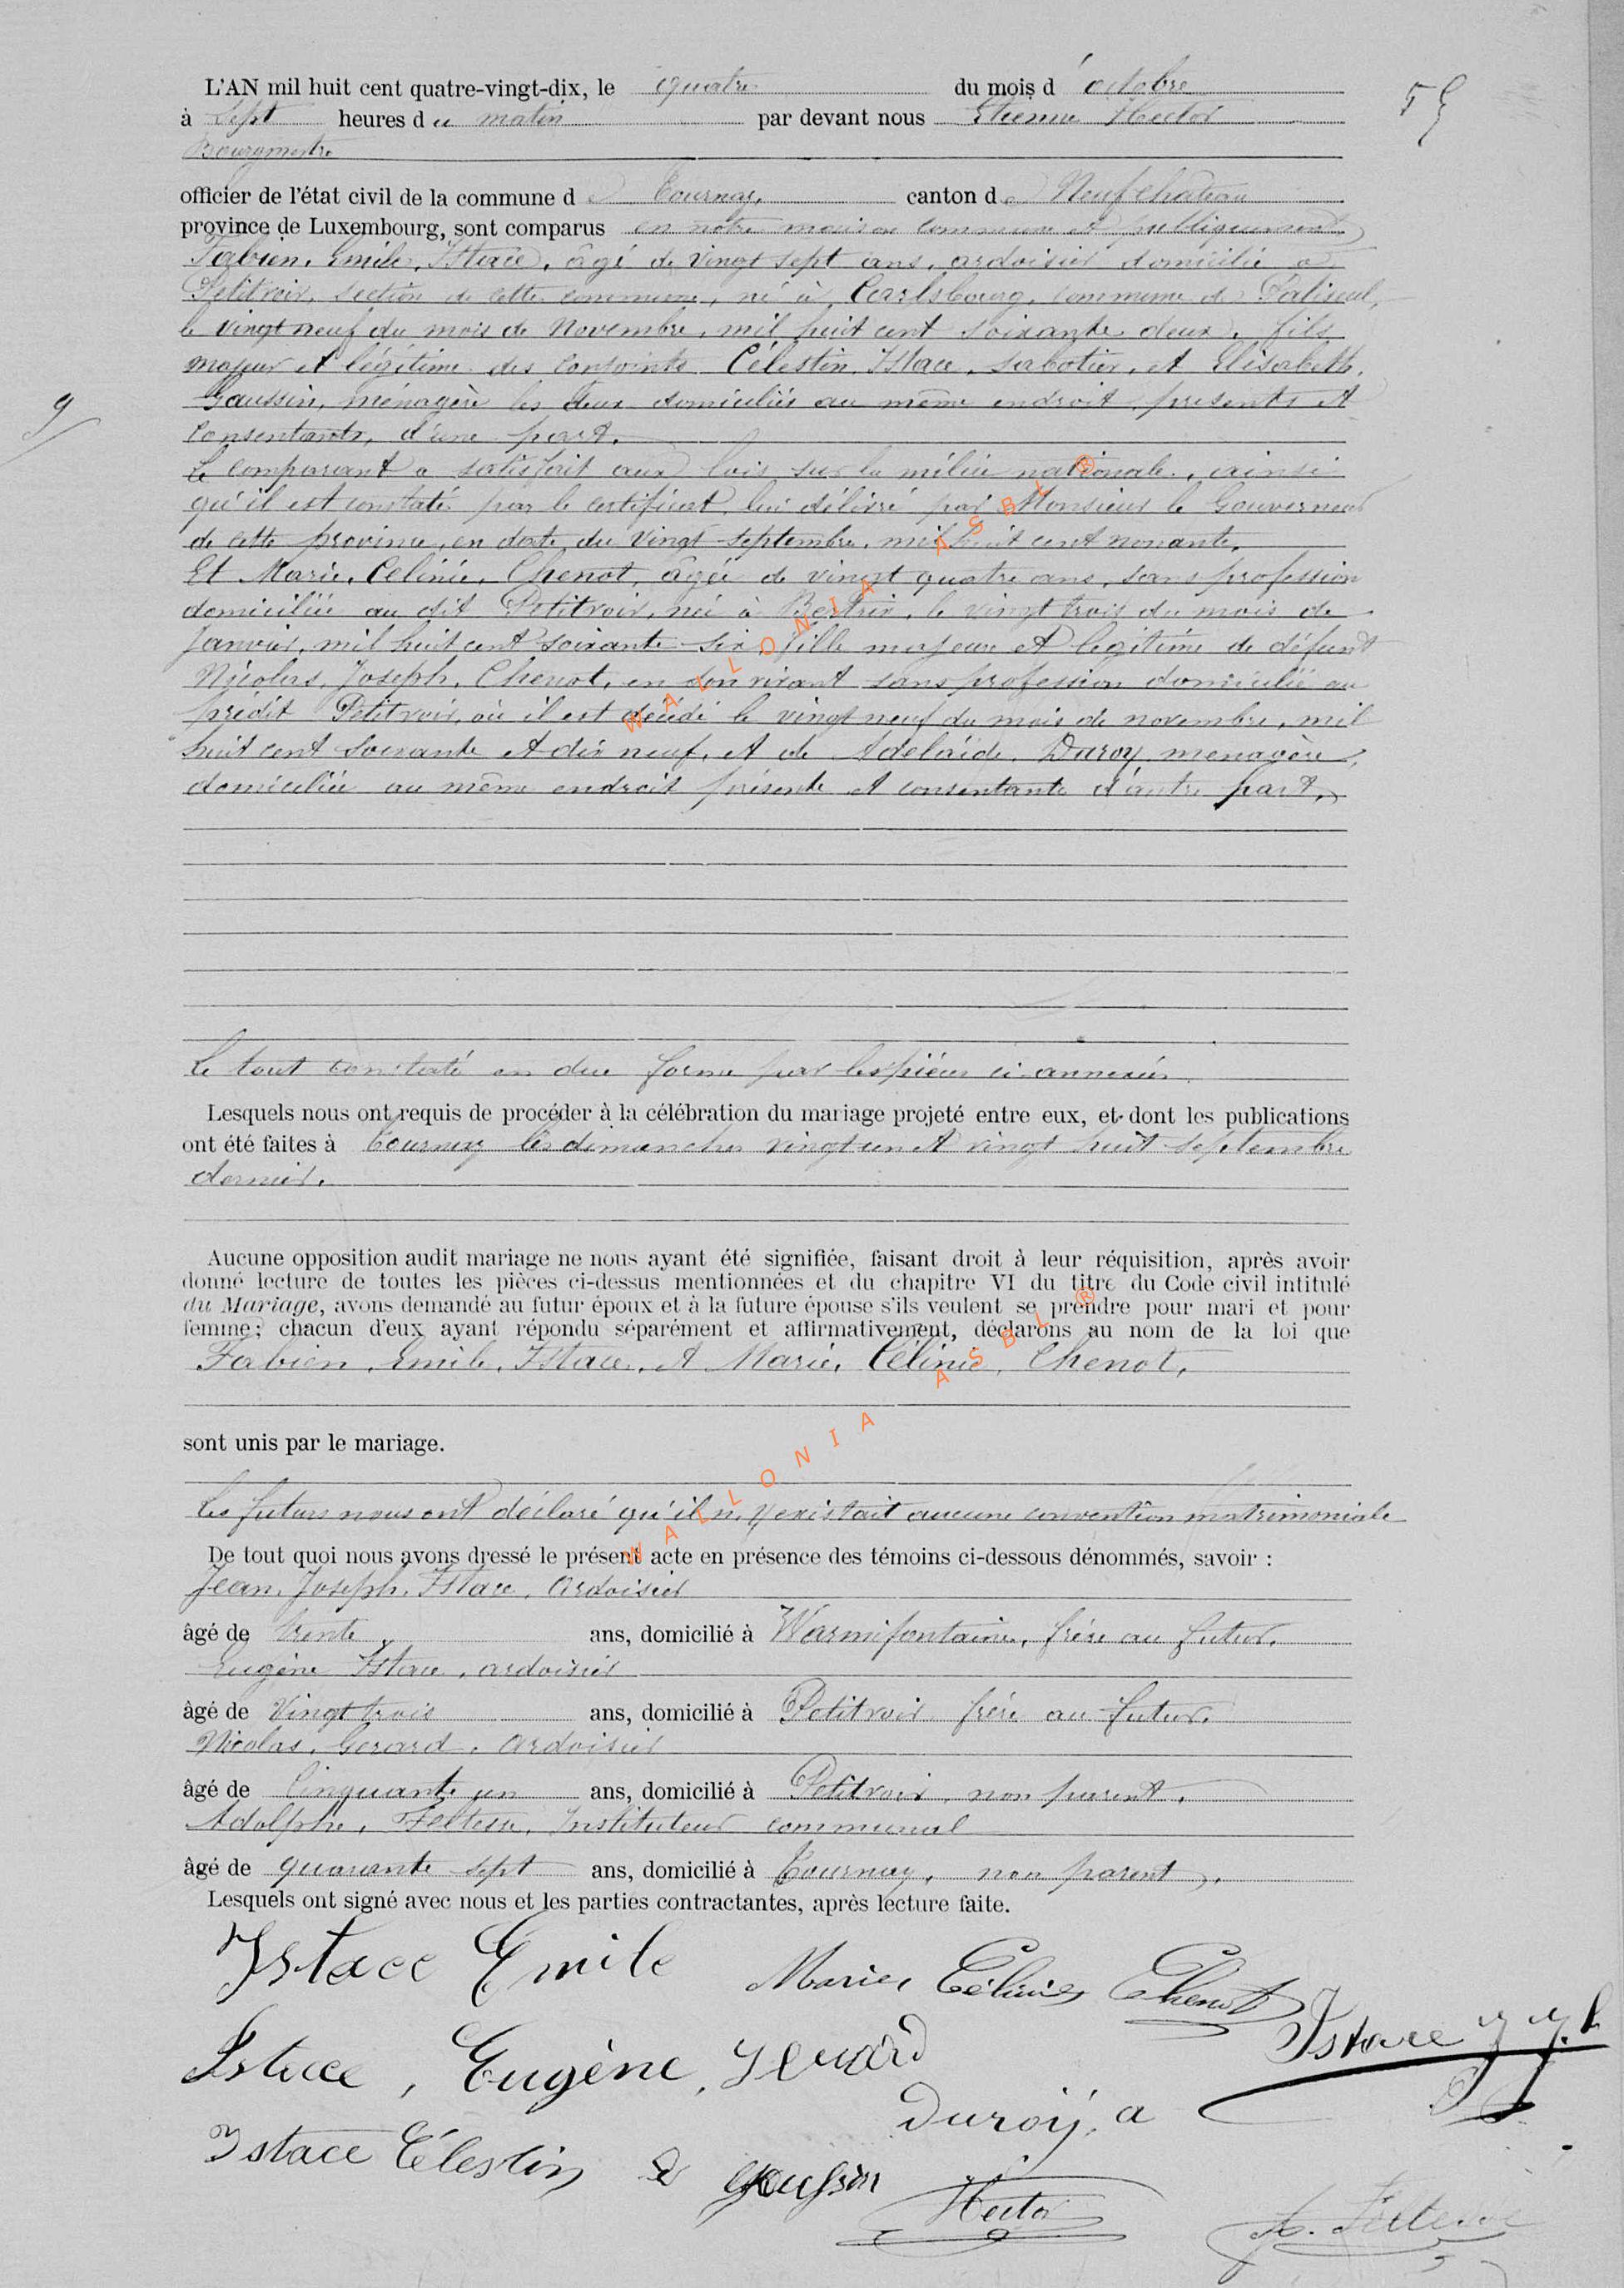 L'AN mil huit cent quatre-vingt-dix, le quatre du mois d'octobre
à sept heures du matin par devant nous Etienne Hector
Bourgmestre
officier de l'état civil de la commune de Tournay, canton de Neufchateau
province de Luxembourg, sont comparus en notre maison commune et publiquement
Fabien, Emile, Istace, âgé de vingt sept ans, ardoisier domicilié à
Petitvoir, section de cette commune, né à Carlsbourg, commune de Paliseul,
le vingt neuf du mois de Novembre, mil huit cent soixante deux, fils
majeur et légitime des conjoints Célestin Istace, sabotier, et Elisabeth
Gaussin, ménagère les deux domiciliés au même endroit, présents et
consentants, d'une part.
Le comparant a satisfait aux lois sur la milice nationale, ainsi
qu'il est constaté par le certificat lui délivré par Monsieur le Gouverneur
de cette province, en date du vingt septembre, mil huit cent nonante.
Et Marie, Célinie, Chenot, âgée de vingt quatre ans, sans profession
domiciliée au dit Petitvoir, née à Bertrix, le vingt trois du mois de
Janvier, mil huit cent soixante six, fille majeure et légitime de défunt
Nicolas, Joseph, Chenot, en son vivant sans profession domicilié au
prédit Petitvoir, où il est décédé le vingt neuf du mois de novembre, mil
huit cent soixante et dix neuf, et de Adelaïde, Duroy, menagère,
domiciliée au même endroit présente et consentante d'autre part,
Le tout constaté en due forme par les pièces ci-annexées
Lesquels nous ont requis de procéder à la célébration du mariage projeté entre eux, et dont les publications
ont été faites à Tournay les dimanches vingt un et vingt huit septembre
dernier.
Aucune opposition audit mariage ne nous ayant été signifiée, faisant droit à leur réquisition, après avoir
donné lecture de toutes les pièces ci-dessus mentionnées et du chapitre VI du titre du Code civil intitulé
du Mariage, avons demandé au futur époux et à la future épouse s'ils veulent se prendre pour mari et pour
femme; chacun d'eux ayant répondu séparément et affirmativement, déclarons au nom de la loi que
Fabien, Emile, Istace, et Marie, Célinie, Chenot,
sont unis par le mariage.
Les futurs nous ont déclaré qu'il n'y existait aucune convention matrimoniale
De tout quoi nous avons dressé le présent acte en présence des témoins ci-dessous dénommés, savoir :
Jean, Joseph, Istace, ardoisier
âgé de trente ans, domicilié à Warmifontaine, frère au futur.
Eugène Istace, ardoisier
âgé de vingt trois ans, domicilié à Petitvoir frère au futur.
Nicolas, Gerard, ardoisier
âgé de cinquante un ans, domicilié à Petitvoir, non parent.
Adolphe, Feltesse, Instituteur communal
âgé de quarante sept ans, domicilié à Tournay, non parent,
Lesquels ont signé avec nous et les parties contractantes, après lecture faite.
Istace Emile Marie Célinie Chenot
Istace J J
Istace, Eugène,
Duroÿ, a
Istace Célestin E Gaussin
Hector
A. Feltesse
9
WALLONIA ASBL ®
WALLONIA ASBL ®